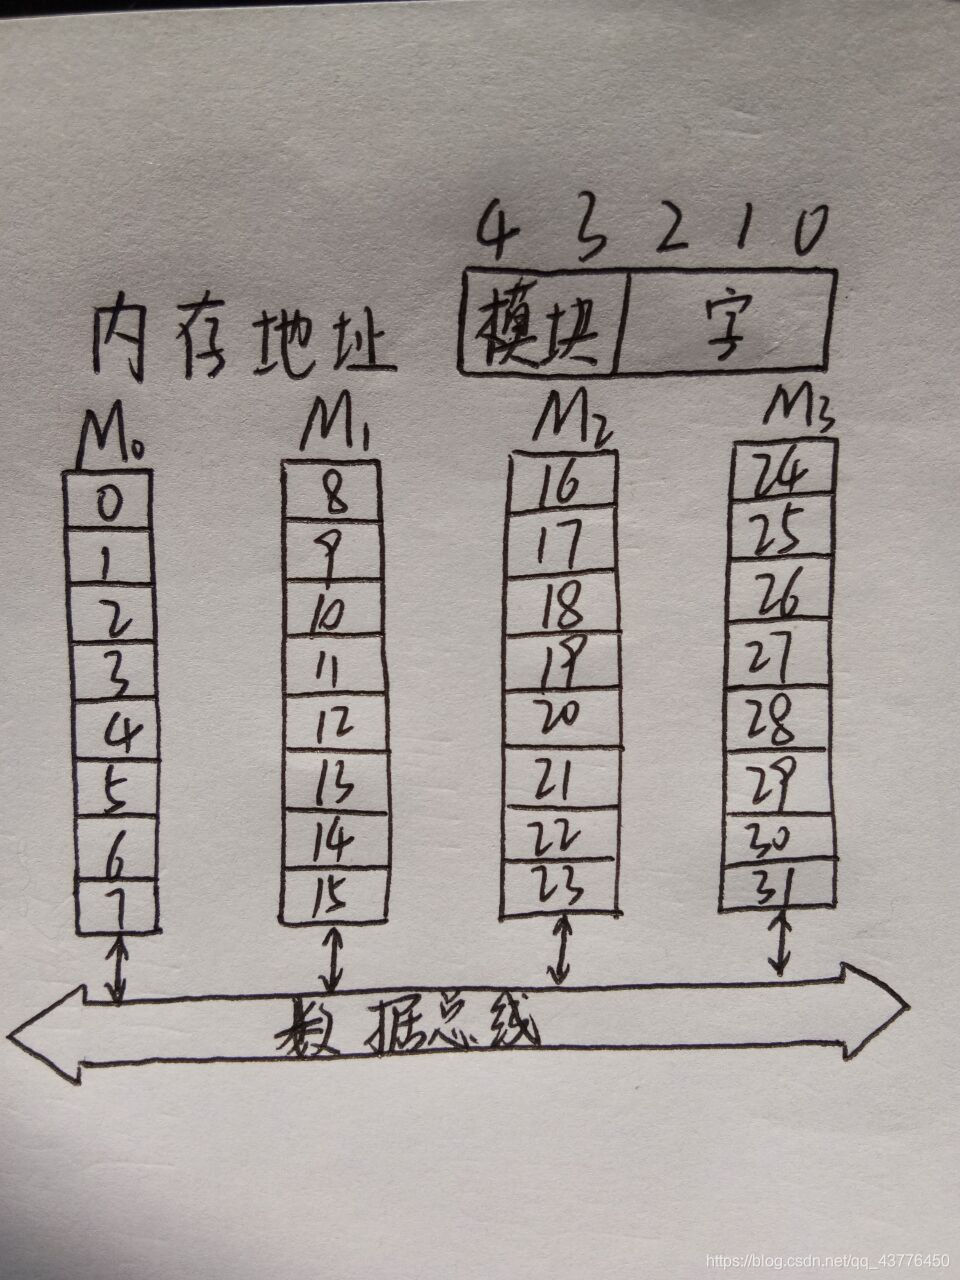 4 3 2 1 0
内存地址 模块 字
M0 M1 M2 M3
0 8 16 24
1 9 17 25
2 10 18 26
3 11 19 27
4 12 20 28
5 13 21 29
6 14 22 30
7 15 23 31
数据总线
https://blog.csdn.net/qq_43776450